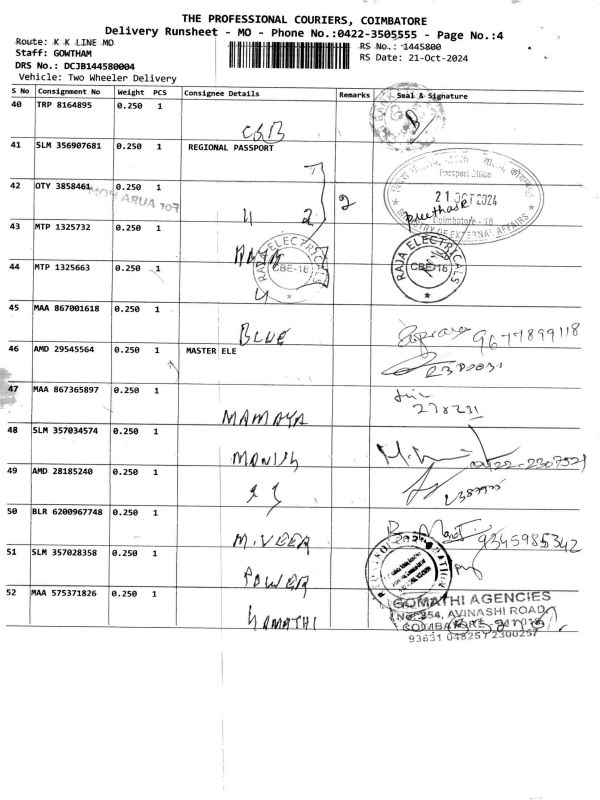 THE PROFESSIONAL COURIERS, COIMBATORE
Delivery Runsheet - MO - Phone No.:0422-3505555 - Page No.:4
Route: K K LINE MO
RS No.: 1445800
Staff: GOWTHAM
RS Date: 21-Oct-2024
DRS No.: DCJB144580004
Vehicle: Two Wheeler Delivery
S No Consignment No Weight PCS Consignee Details Remarks Seal & Signature
40 TRP 8164895 0.250 1
41 SLM 356907681 0.250 1 REGIONAL PASSPORT
Passport Office
42 OTY 3858461 0.250 1 2
21 OCT 2024
FOR AURA HOM
Coimbatore - 18
MINISTRY OF EXTERNAL AFFAIRS
43 MTP 1325732 0.250 1
RAJA ELECTRICALS CBE-18
RAJA ELECTRICALS CBE-18
44 MTP 1325663 0.250 1
45 MAA 867001618 0.250 1
BLUE
9677899118
46 AMD 29545564 0.250 1 MASTER ELE
47 MAA 867365897 0.250 1
MAMAYA
48 SLM 357034574 0.250 1
MANISH
0422-2307521
49 AMD 28185240 0.250 1
50 BLR 6200967748 0.250 1
M.VEER
9345985342
51 SLM 357028358 0.250 1
POWER
52 MAA 575371826 0.250 1
GOMATHI
GOMATHI AGENCIES
No: 354, AVINASHI ROAD
COIMBATORE
93631 04825 / 2300257